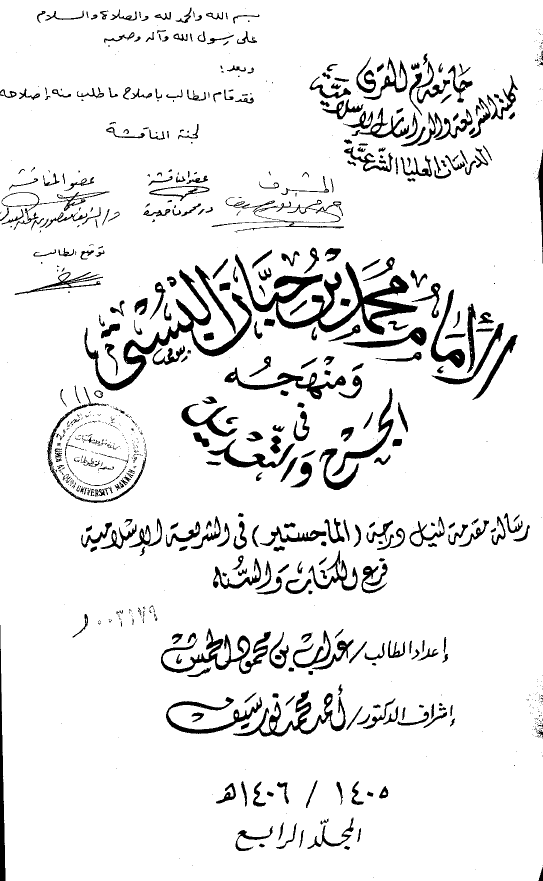 بسم الله والحمد لله والصلاة والسلام
على رسول الله وآله وصحبه
وبعد:
فقد قام الطالب بإصلاح ما طلب منه إصلاحه
لجنة المناقشة
جامعة أم القرى
كلية الشريعة والدراسات الإسلامية
الدراسات العليا الشرعية
المشرف
عضو المناقشة
عضو المناقشة
توقيع الطالب
الإمام محمد بن حبان البستي
ومنهجه
في
الجرح والتعديل
UMM AL-QURA UNIVERSITY MAKKAH
رسالة مقدمة لنيل درجة (الماجستير) في الشريعة الإسلامية
فرع الكتاب والسنة
٠٠٣١٧٩
إعداد الطالب/ عداب بن محمود الحمش
إشراف الدكتور/ أحمد محمد نور سيف
١٤٠٥ / ١٤٠٦هـ
المجلد الرابع